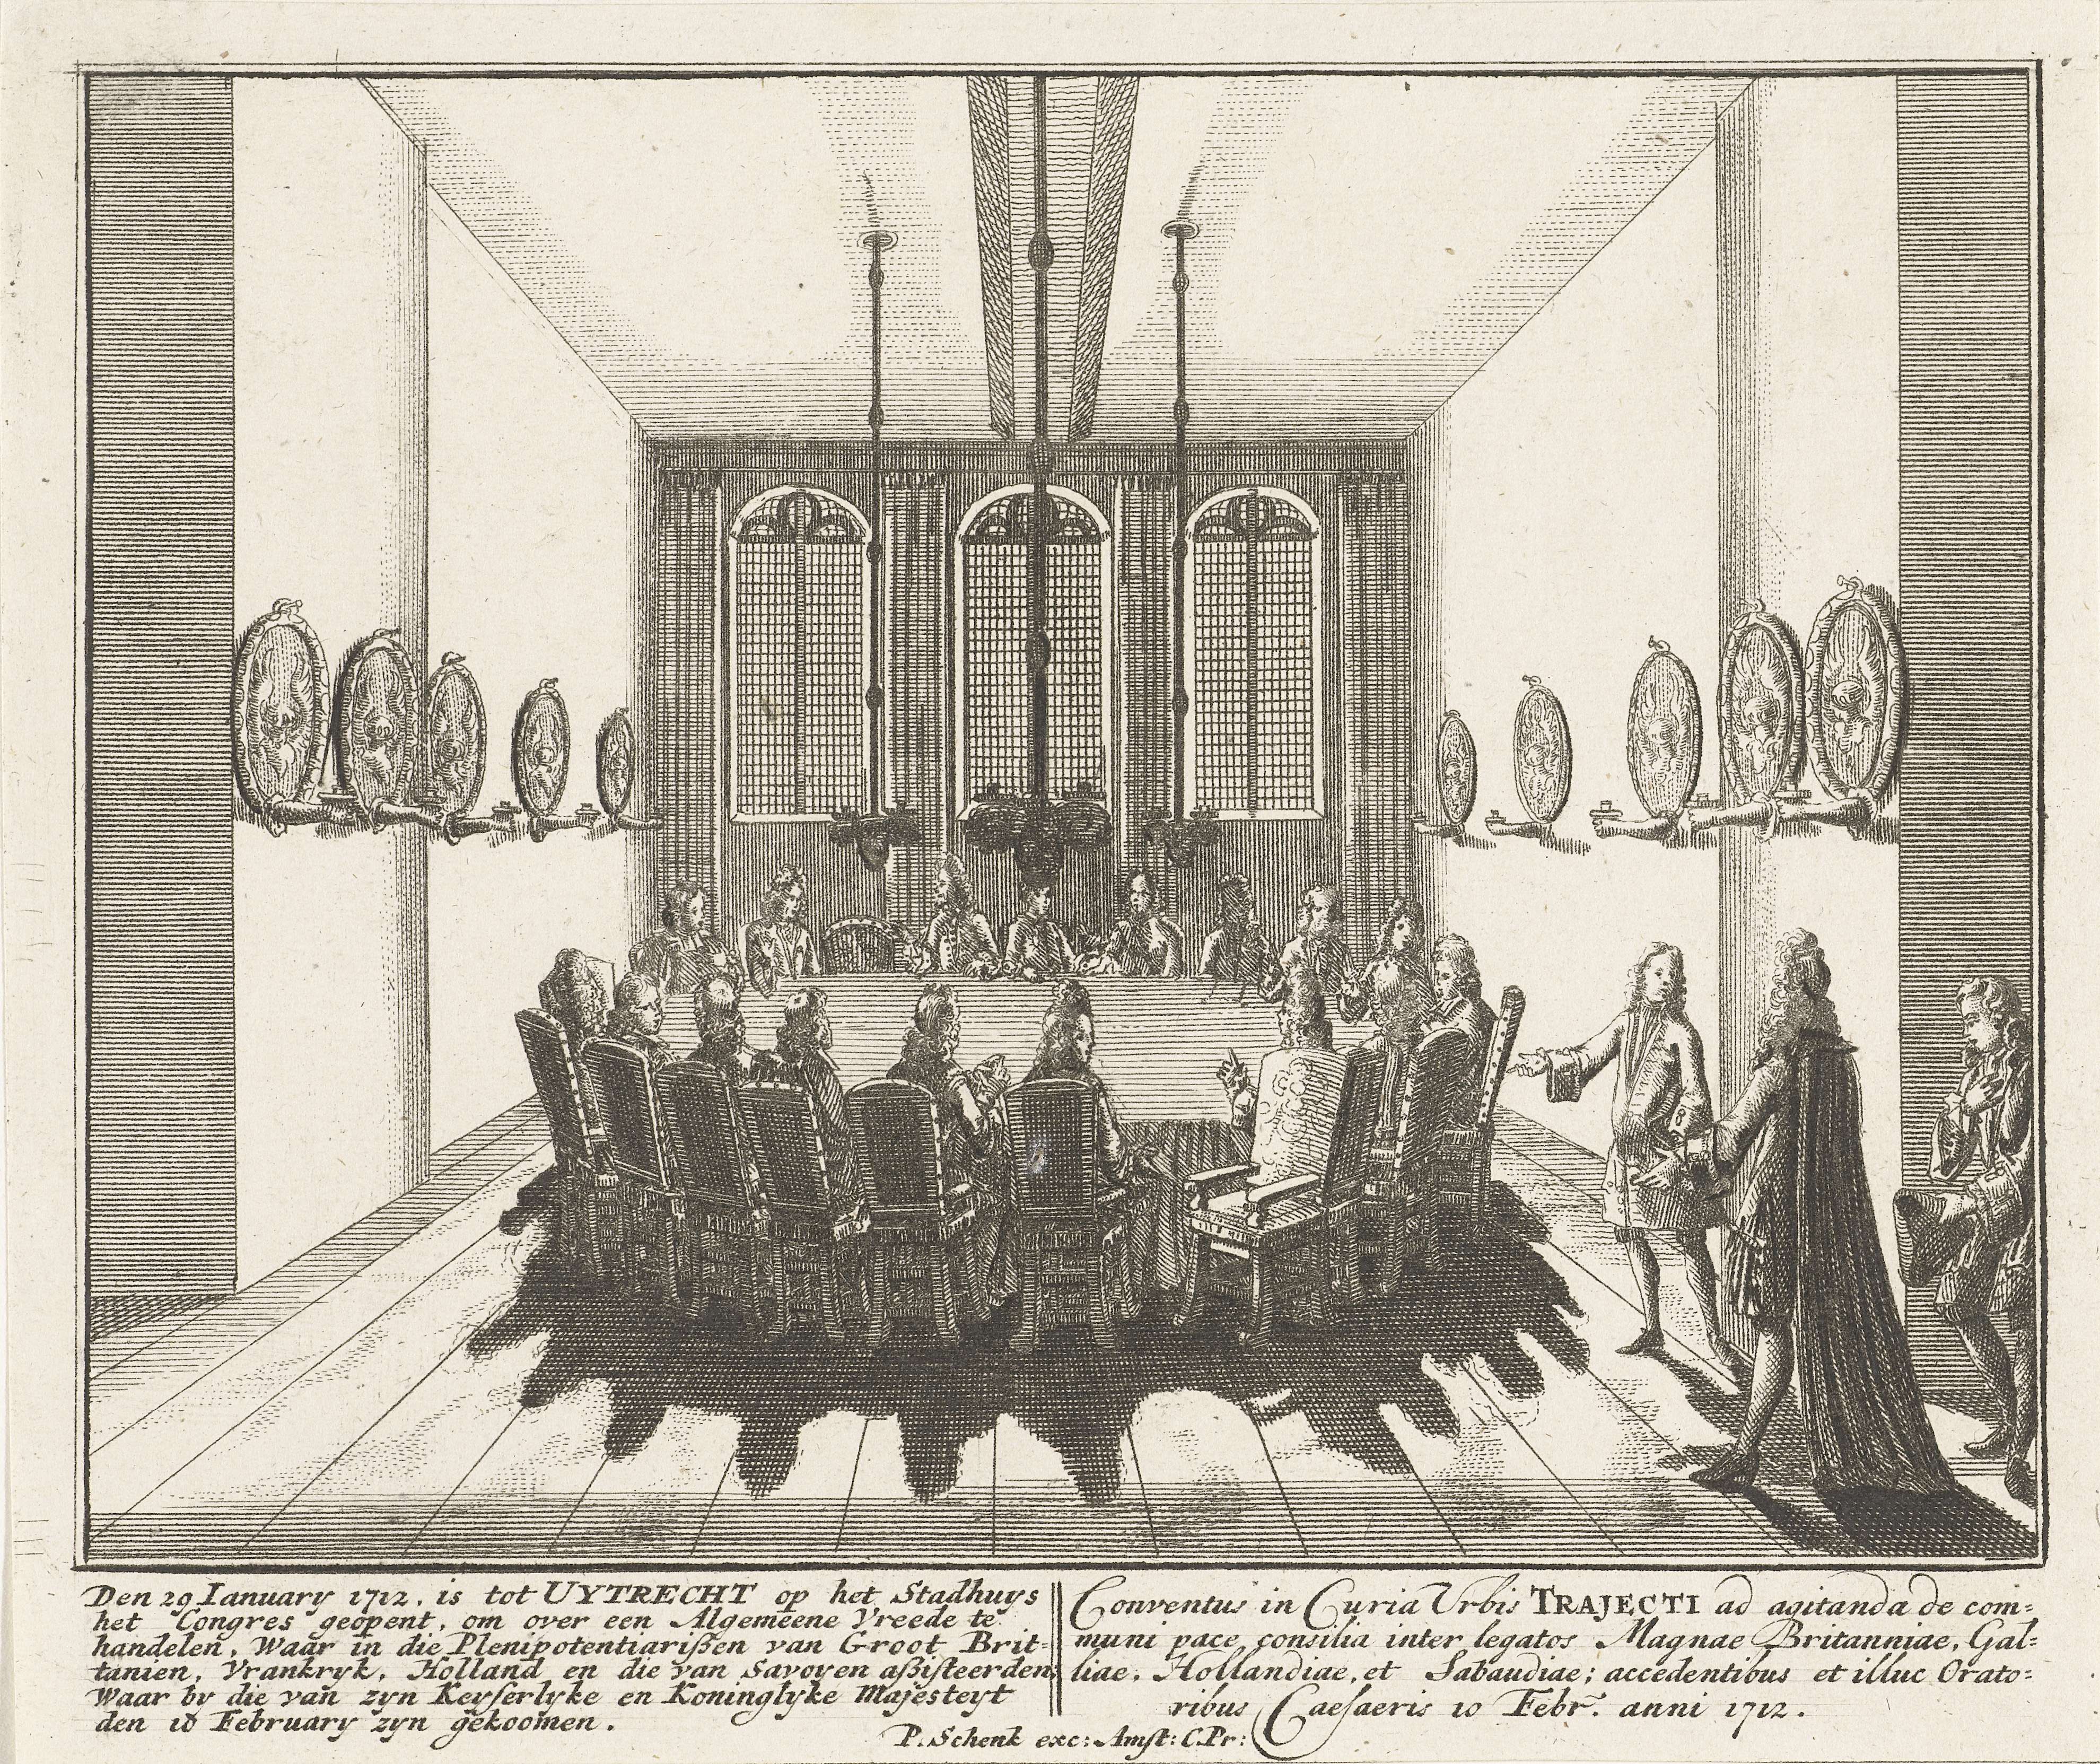 Den 29 Ianuary 1712. is tot UYTRECHT op het Stadhuys
het Congres geopent, om over een Algemeene Vreede te
handelen, Waar in die Plenipotentiarißen van Groot Brit=
tanien, Vrankryk, Holland en die van Savoyen aßisteerden,
Waar by die van zyn Keyserlyke en Koninglyke Majesteyt
den 10 February zyn gekoomen.
Conventus in Curia Urbis TRAJECTI ad agitanda de com=
muni pace consilia inter legatos Magnae Britanniae, Gal=
liae, Hollandiae, et Sabaudiae; accedentibus et illuc Orato=
ribus Caesaeris 10 Febr. anni 1712.
P. Schenk exc: Amst: C. Pr: